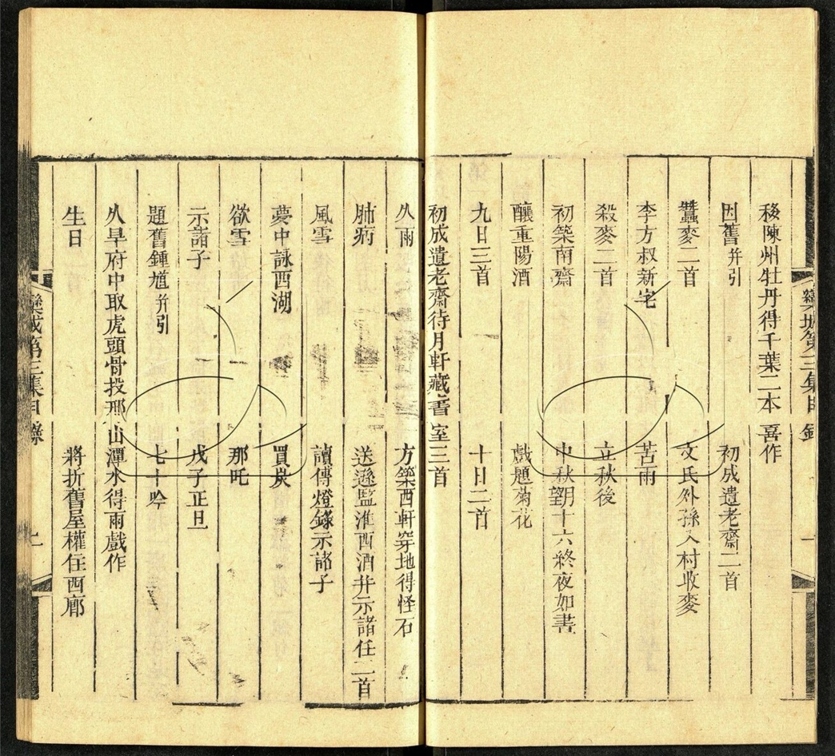 欒城第三集目錄
移陳州牡丹得千葉二本喜作
因舊并引 初成遺老齋二首
蠶麥二首 文氏外孫入村收麥
李方叔新宅 苦雨
殺麥二首 立秋後
初築南齋 中秋望月十六終夜如晝
釀重陽酒 戲題菊花
九日三首 十日二首
初成遺老齋待月軒藏書室三首
久雨 方築西軒穿地得怪石
肺病 送遜監淮西酒并示諸任二首
風雪 讀傳燈錄示諸子
夢中詠西湖 買炭
欲雪 那吒
示諸子 戊子正旦
題舊鍾馗并引 七十吟
久旱府中取虎頭骨投邢山潭水得雨戲作
生日 將折舊屋權住西廊
欒城第三集目錄